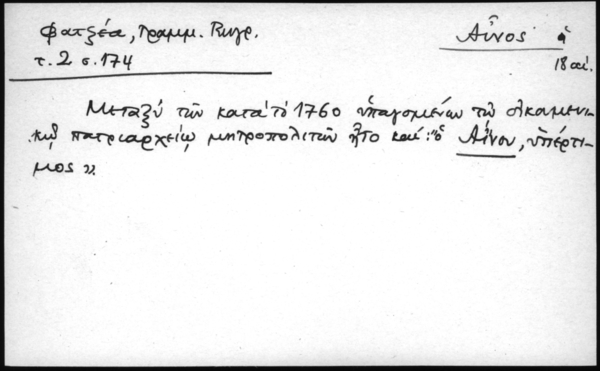 Φατζέα, Γραμμ. Κυγρ.
τ. 2 σ. 174
Αἶνος
18 αἰ.
Μεταξὺ τῶν κατὰ τὸ 1760 ὑπαγομένων τῷ οἰκουμενι-
κῷ πατριαρχείῳ μητροπολιτῶν ἦτο καὶ: "ὁ Αἴνου, ὑπέρτι-
μος".